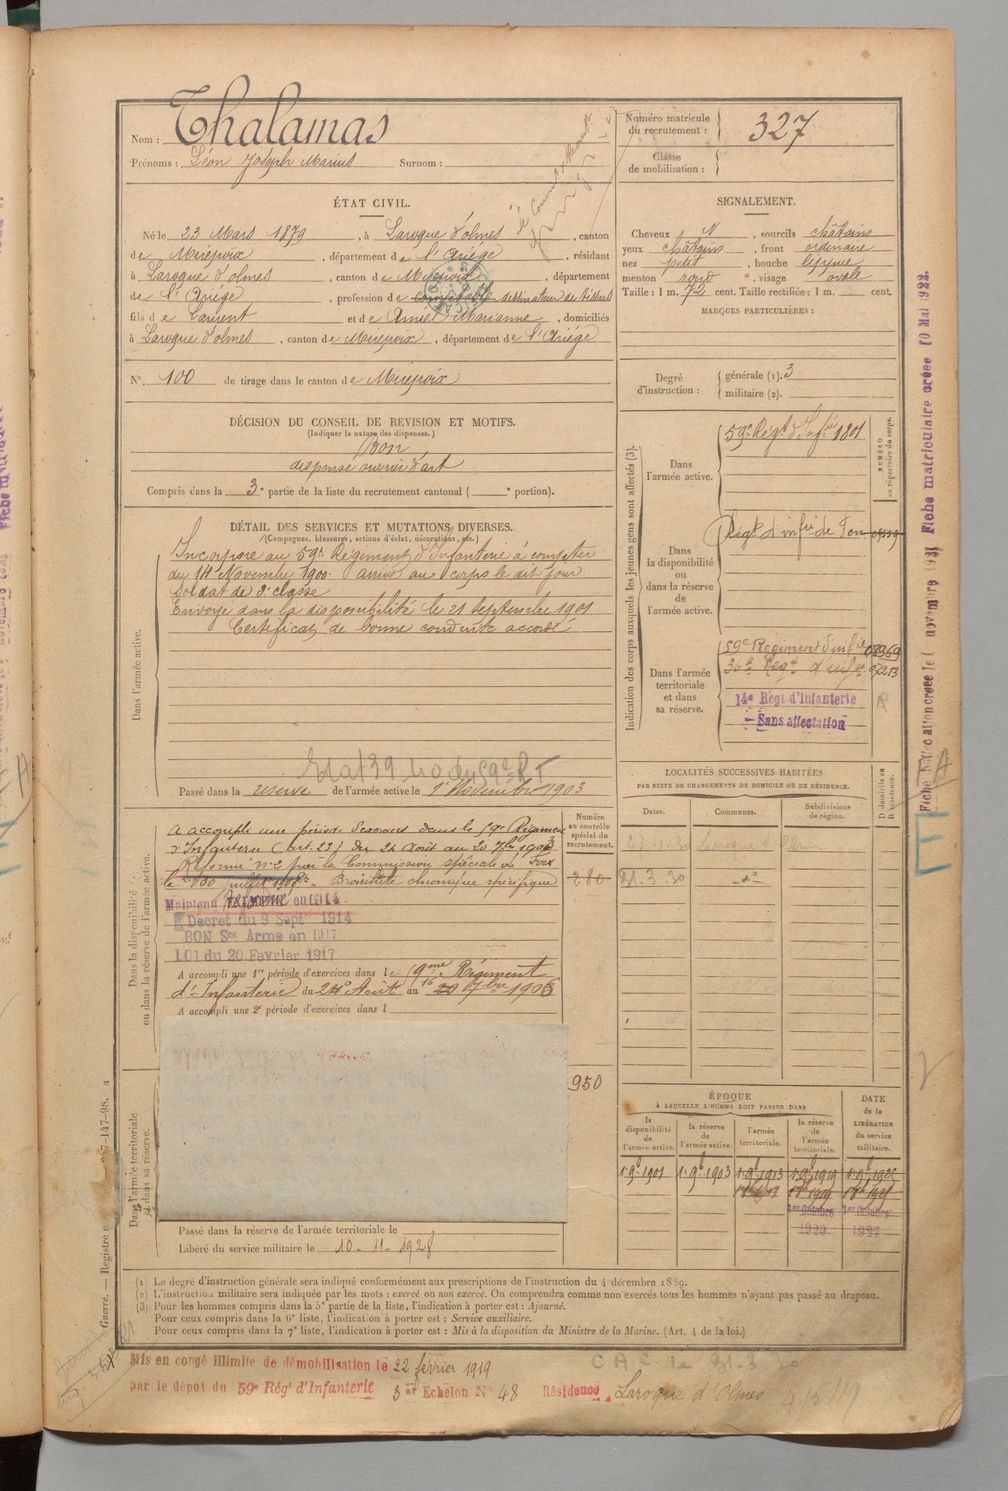 Nom : Thalamas
Prénoms : Léon Joseph Marius Surnom :
Numéro matricule du recrutement : 327
Classe de mobilisation :
ÉTAT CIVIL.
Né le 23 Mars 1879, à Laroque d'olmes, canton
de Mirepoix, département de l'Ariège, résidant
à Laroque d'olmes, canton de Mirepoix, département
de l'Ariège, profession de comptable dessinateur de tissus
fils de Laurent et de Amiel Marianne, domiciliés
à Laroque d'olmes, canton de Mirepoix, département de l'Ariège
N° 100 de tirage dans le canton de Mirepoix
SIGNALEMENT.
Cheveux N, sourcils châtains
yeux châtains, front ordinaire
nez petit, bouche moyenne
menton rond, visage ovale
Taille : 1 m. 72 cent. Taille rectifiée : 1 m. cent.
MARQUES PARTICULIÈRES :
Degré d'instruction : générale (1). 3
militaire (2).
DÉCISION DU CONSEIL DE REVISION ET MOTIFS.
(Indiquer la nature des dispenses.)
Bon
dispensé ouvrier d'art
Compris dans la 3e partie de la liste du recrutement cantonal ( portion).
DÉTAIL DES SERVICES ET MUTATIONS DIVERSES.
(Campagnes, blessures, actions d'éclat, décorations, etc.)
Dans l'armée active.
Incorporé au 59e Régiment d'Infanterie à compter
du 14 Novembre 1900. arrivé au corps le dit jour
Soldat de 2e classe
Envoyé dans la disponibilité le 21 septembre 1901
Certificat de bonne conduite accordé
Passé dans la réserve de l'armée active le 1er Novembre 1903
Indication des corps auxquels les jeunes gens sont affectés (3).
NUMÉRO au répertoire du corps.
Dans l'armée active.
59e Régt d'Infie 1801
Dans la disponibilité ou dans la réserve de l'armée active.
Régt d'infie de Foix
Dans l'armée territoriale et dans sa réserve.
59e Régiment d'infie
36e Régt d'infie
14e Régt d'Infanterie
Sans affectation
LOCALITÉS SUCCESSIVES HABITÉES
PAR SUITE DE CHANGEMENTS DE DOMICILE OU DE RÉSIDENCE.
Dates. Communes. Subdivisions de région. D domicile ou R résidence.
31.3.30 -do-
Dans la disponibilité ou dans la réserve de l'armée active.
Numéro au contrôle spécial du recrutement.
A accompli une période d'exercices dans le 59e Régiment
d'Infanterie (art. 23) du 24 Août au 20 7bre 1906
Réformé n° 2 par la Commission spéciale de Foix
le 30 juillet 1908. Bronchite chronique spécifique
280
Maintenu réformé en 1914
Décret du 9 Sept 1914
BON Sce Armé en 1917
LOI du 20 Février 1917
A accompli une 1re période d'exercices dans le 59me Régiment
d'Infanterie du 20 Août au 16 7bre 1906
A accompli une 2e période d'exercices dans l
950
Dans l'armée territoriale et dans sa réserve.
Passé dans la réserve de l'armée territoriale le
Libéré du service militaire le 10-11-1928
ÉPOQUE
À LAQUELLE L'HOMME DOIT PASSER DANS
la disponibilité de l'armée active. la réserve de l'armée active. l'armée territoriale. la réserve de l'armée territoriale.
DATE de la LIBÉRATION du service militaire.
1 9b 1901 1 9b 1903 1 9b 1913 1 9b 1919 1 9b 1925
1er Octobre 1920 1er Octobre 1927
(1) Le degré d'instruction générale sera indiqué conformément aux prescriptions de l'instruction du 4 décembre 1889.
(2) L'instruction militaire sera indiquée par les mots : exercé ou non exercé. On comprendra comme non exercés tous les hommes n'ayant pas passé au drapeau.
(3) Pour les hommes compris dans la 5e partie de la liste, l'indication à porter est : Ajourné.
Pour ceux compris dans la 6e liste, l'indication à porter est : Service auxiliaire.
Pour ceux compris dans la 7e liste, l'indication à porter est : Mis à la disposition du Ministre de la Marine. (Art. 4 de la loi.)
C.A.C. le 31.3.30
Mis en congé illimité de démobilisation le 22 février 1919
par le dépôt du 59e Régt d'Infanterie 3e Echelon N° 48 Résidence Laroque d'Olmes
Fiche matriculaire créée 10 Mai 1922.